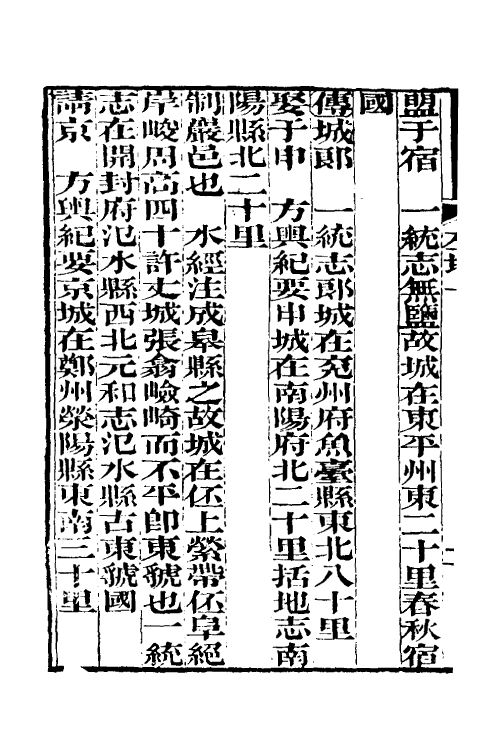 盟于宿　一統志無鹽故城在東平州東二十里春秋宿
國
傳城郎　一統志郎城在兖州府魚臺縣東北八十里
娶于申　方輿紀要申城在南陽府北二十里括地志南
陽縣北二十里
制嚴邑也　水經注成皋縣之故城在伾上縈帶伾阜絕
岸峻周高四十許丈城張翕嶮崎而不平卽東虢也一統
志在開封府氾水縣西北元和志氾水縣古東虢國
請京　方輿紀要京城在鄭州滎陽縣東南三十里